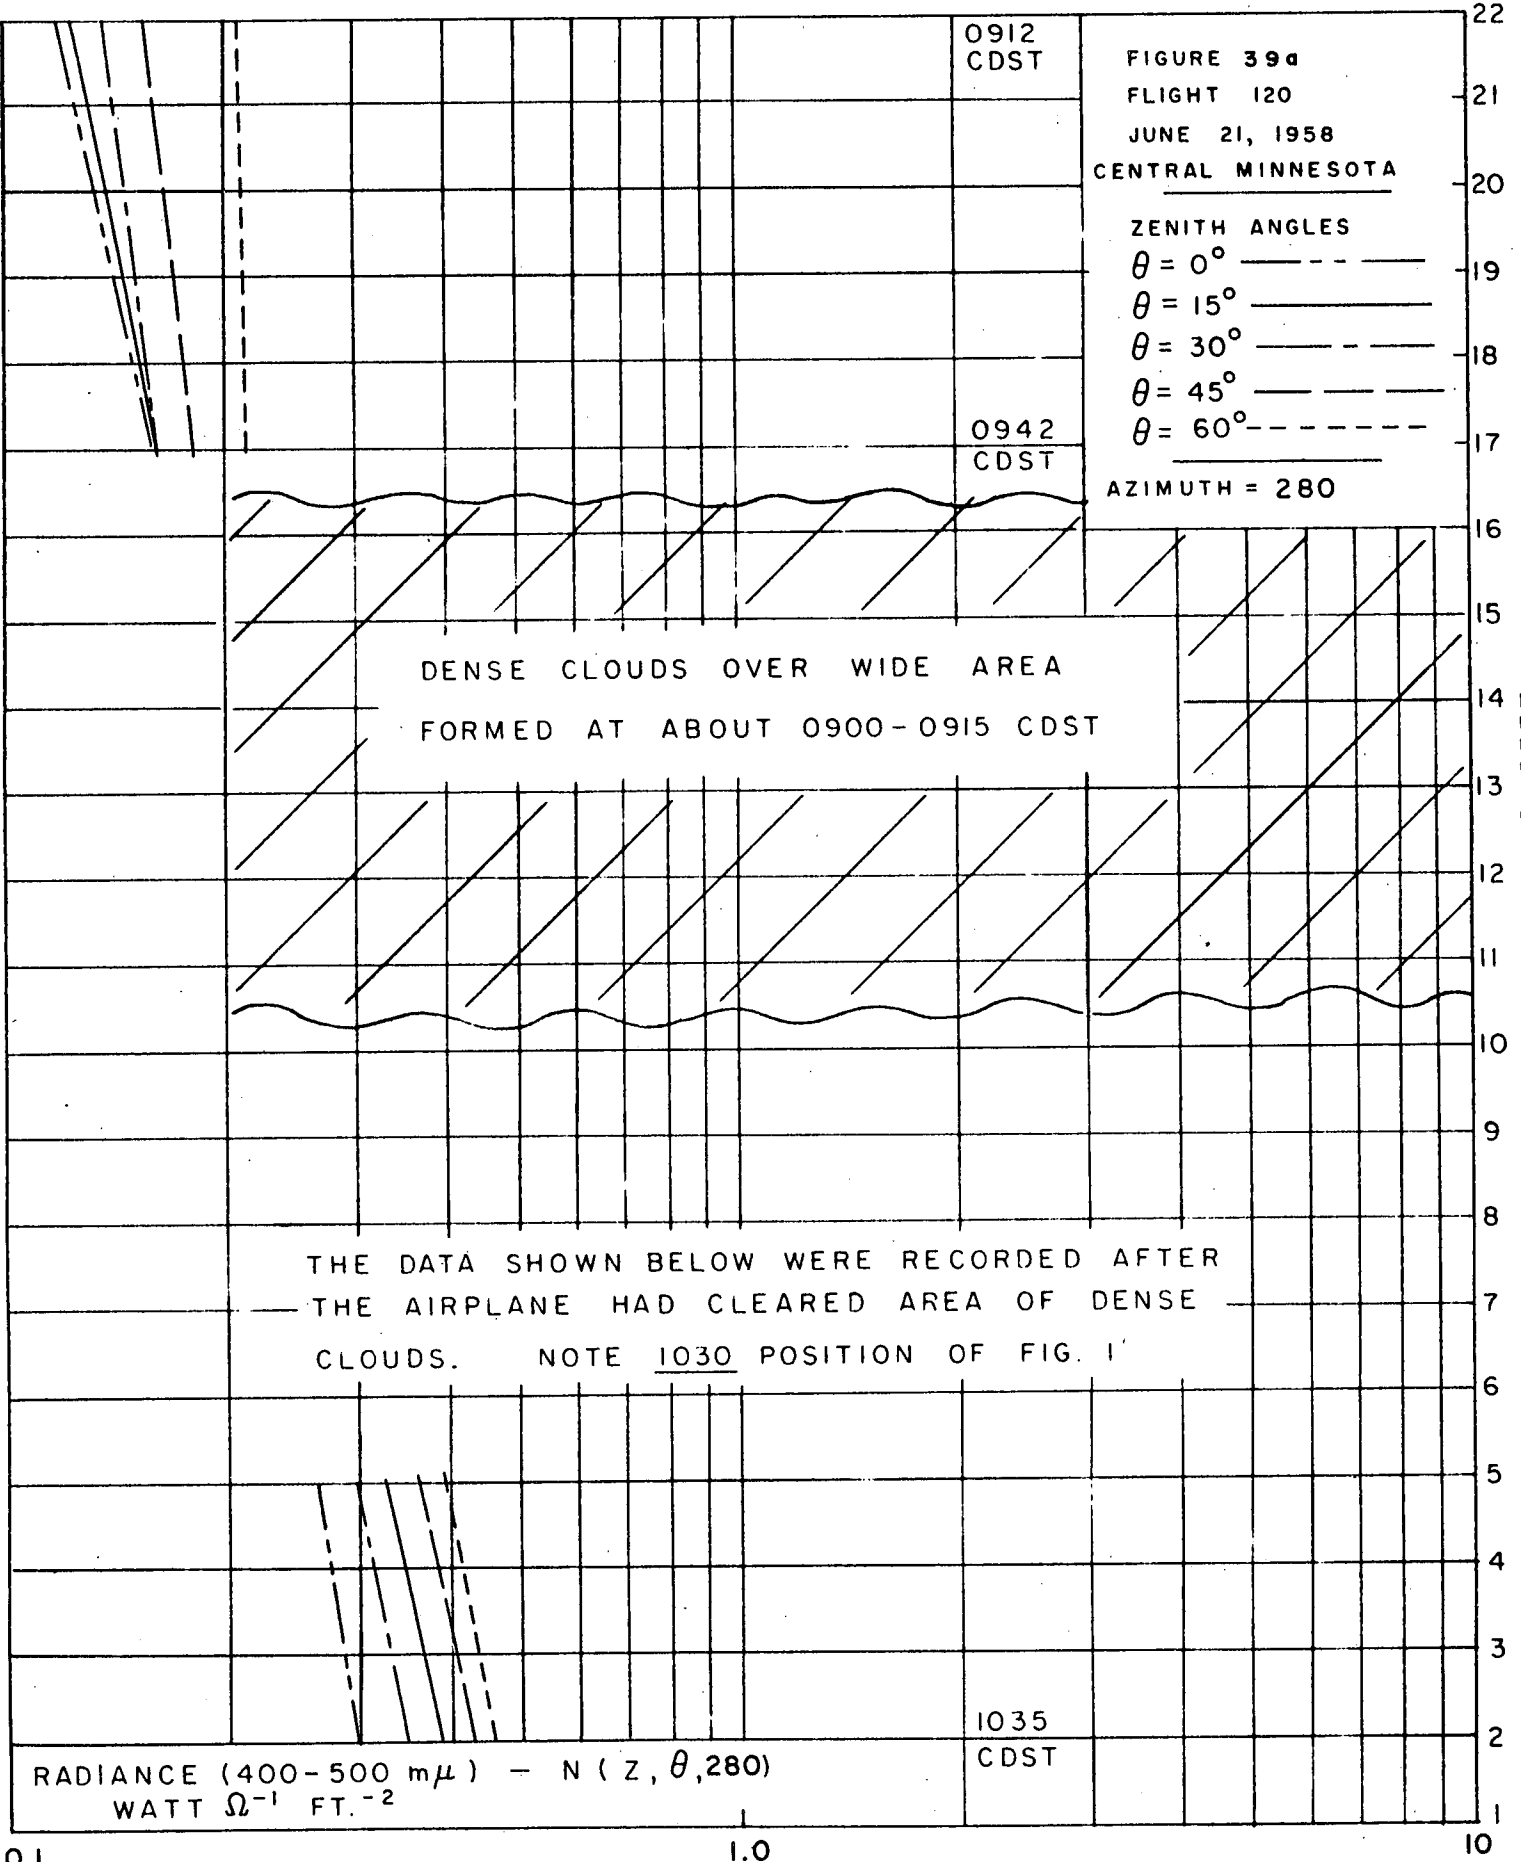 0912
CDST
FIGURE 39a
FLIGHT 120
JUNE 21, 1958
CENTRAL MINNESOTA
ZENITH ANGLES
θ = 0°
θ = 15°
θ = 30°
θ = 45°
θ = 60°
AZIMUTH = 280
0942
CDST
DENSE CLOUDS OVER WIDE AREA
FORMED AT ABOUT 0900-0915 CDST
THE DATA SHOWN BELOW WERE RECORDED AFTER
THE AIRPLANE HAD CLEARED AREA OF DENSE
CLOUDS. NOTE 1030 POSITION OF FIG. 1
1035
CDST
RADIANCE (400-500 mμ) - N ( Z, θ, 280)
WATT Ω⁻¹ FT.⁻²
22
21
20
19
18
17
16
15
14
13
12
11
10
9
8
7
6
5
4
3
2
1
0.1
1.0
10